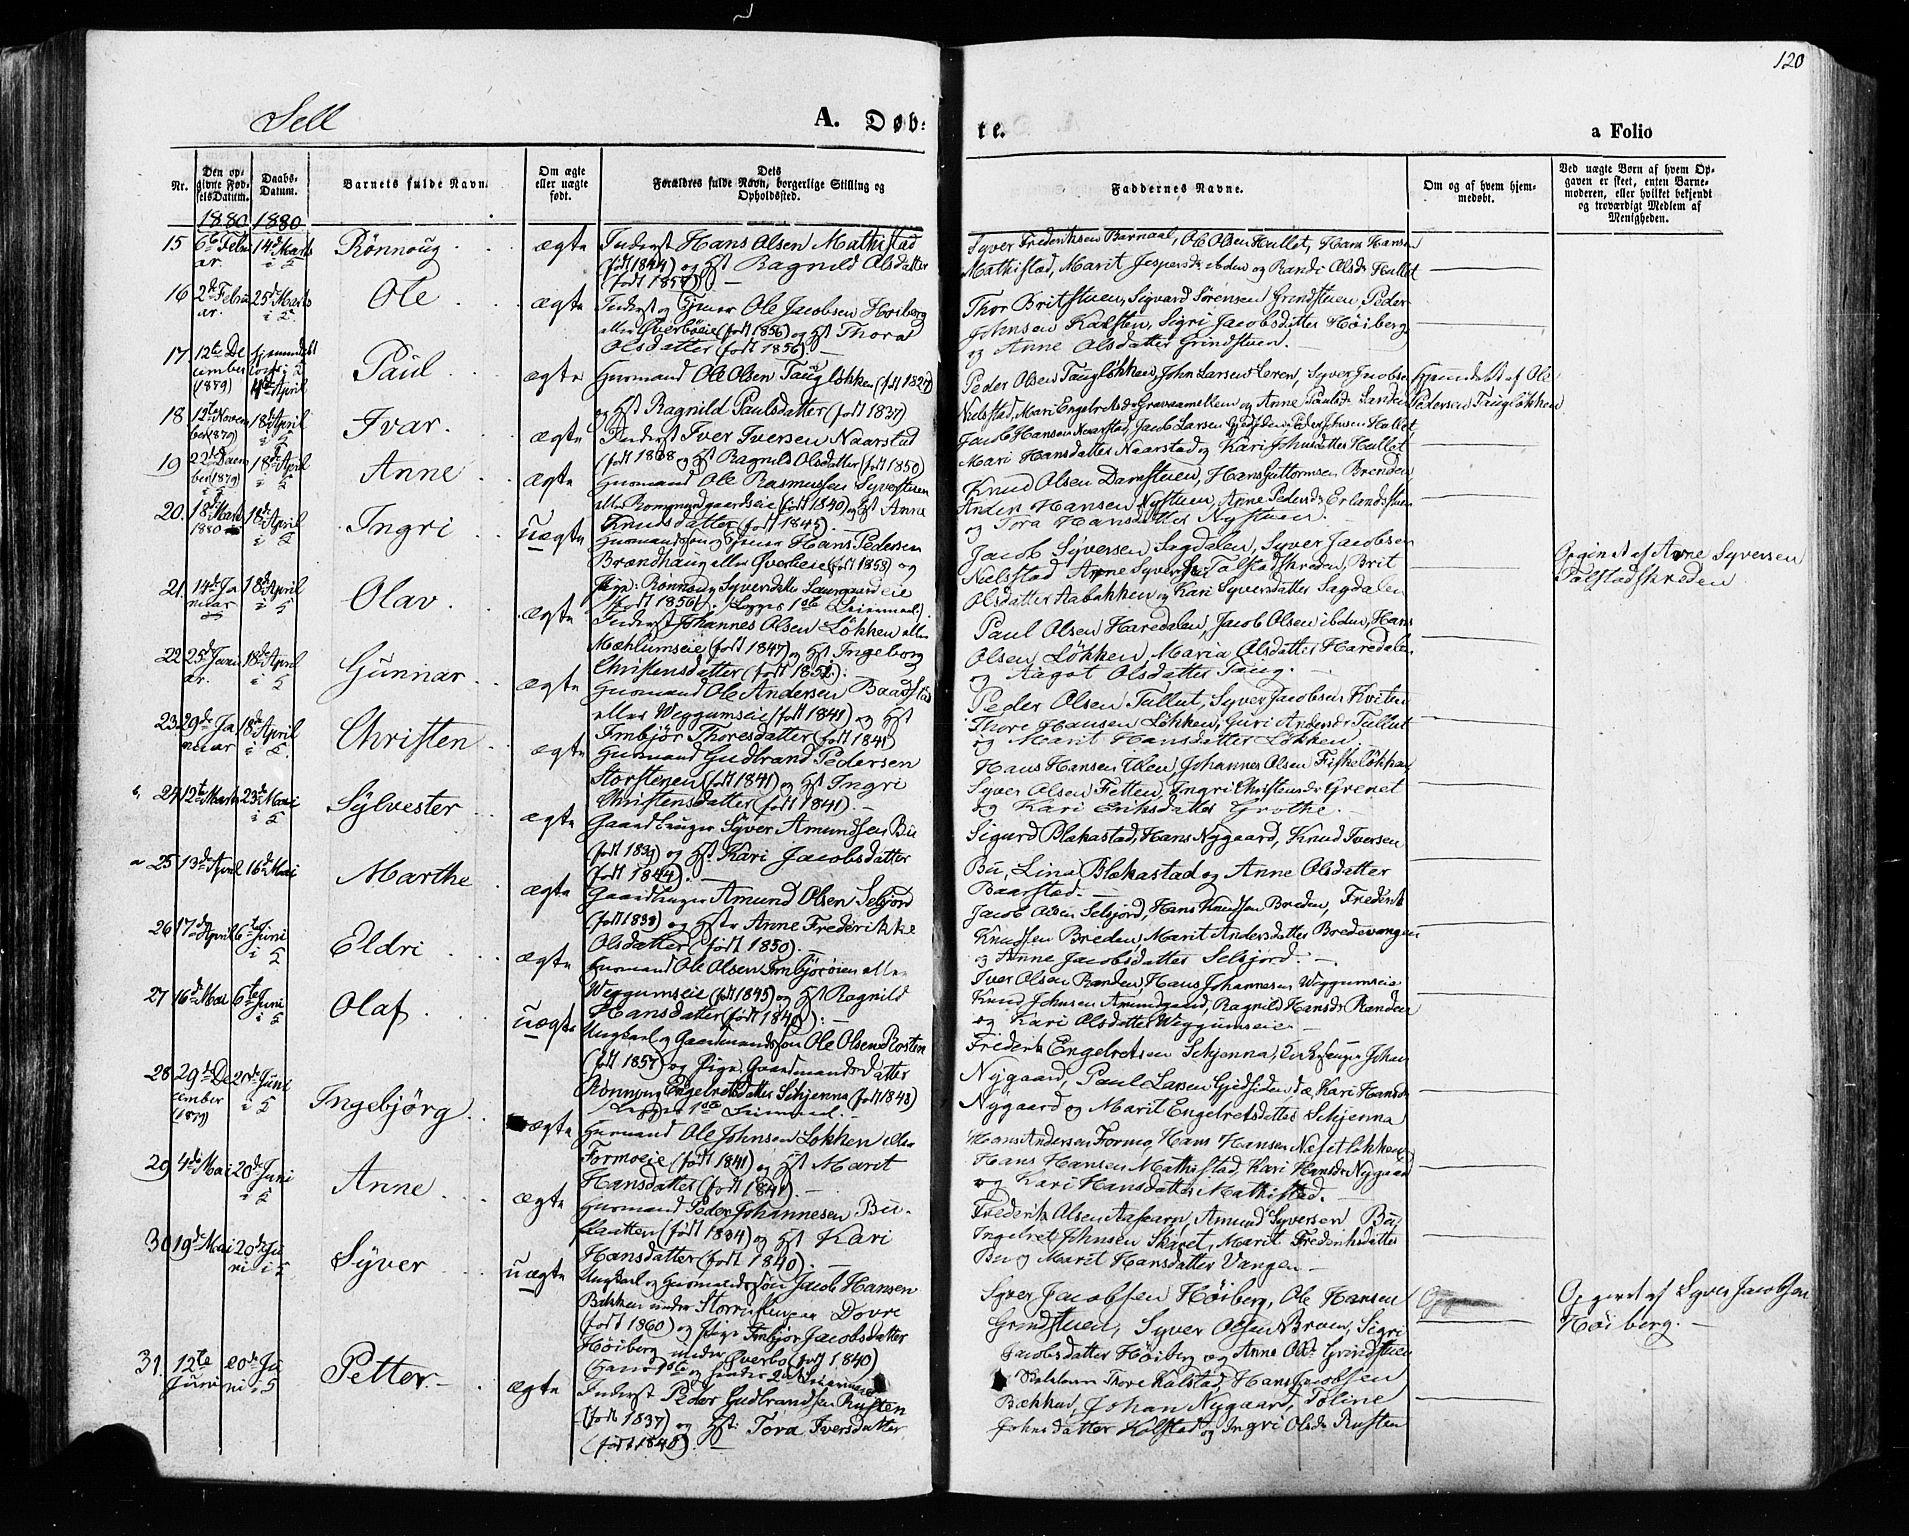 120
Sell
A. Døb-
te.
a Folio
Nr.
Den op-
givne Fød-
selsDatum.
Daabs-
Datum.
Barnets fulde Navn.
Om ægte
eller uægte
født.
Dets
Forældres fulde Navn, borgerlige Stilling og
Opholdssted.
Faddernes Navne.
Om og af hvem hjem-
medøbt.
Ved uægte Born af hvem Op-
gaven er skeet, enten Barne-
moderen, eller hvilket bekjendt
og troværdigt Medlem af
Menigheden.
1880 1880
15 6te Febru
ar. 14de Marts
i S
Rönnoug
ægte
Inderst Hans Olsen Mathistad
(født 1844) og Hst Ragnild Olsdatter
(født 1857). —
Syver Frederiksen Barnaal, Ole Olsen Hullet, Hans Hansen
Mathistad, Marit Jespersdr ibden og Randi Olsdr Hullet
16 2de Febru
ar. 25de Marts
i S.
Ole
ægte
Inderst og Ole Jacobsen Höiberg
eller Øverböeie (født 1856) og Hst Thora
Olsdatter (født 1856). —
Thor Britstuen, Sigvard Sörensen Grindstuen, Peder
Johnsen Kalsten, Sigri Jacobsdatter Höiberg
og Anne Olsdatter Grindstuen. —
17 12te De
cember
(1879)
hjemmedøbt
4de April
Paul
ægte
Husmand Ole Olsen Tauglökken (født 1827)
og Hst Ragnild Paulsdatter (født 1837)
Peder Olsen Tauglökken, John Larsen Leren, Syver Jacobsen
Nielstad, Mari Engelretsdr og Anne Paulsdr Sanden
Hjemdøbt af Ole
Pedersen Tauglökken
18 12te Novem
ber (1879) 18de April
i S
Ivar
ægte
Inderst Iver Iversen Naarstad
(født 1868 og Hst Ragnild Olsdatter (født 1850)
Jacob Hansen Naarstad, Jacob Larsen Gjedsiden, Peder Johnsen Hullet
Mari Hansdatter Naarstad og Kari Johnsdatter Hullet
19 22de Decem
ber (1879) 18de April
i S
Anne
ægte
Husmand Ole Rasmussen Syverstuen
eller Romundgaardseie (født 1840) og Hst Anne
Knudsdatter (født 1845). —
Knud Olsen Damstuen, Hans Guttormsen Brenden
Anders Hansen Nystuen, Anne Pedersdr Erlandsstuen
og Tora Hansdatter Nystuen.
20. 18de Marts
1880 18de April
i S
Ingri
uægte
Hans Pedersen
Brandhaug eller Øverbeeie (født 1858) og
Pige: Rönnoug Syversdatter Laurgaardeie
(født 1856). (Begges 1ste Leiermaal).
Jacob Syversen Sagdalen, Syver Jacobsen
Nielsstad Anne Syversdr Tolstadskreden, Brit
Olsdatter Aabakken og Kari Syversdatter Sagdalen
Opgivet af Anne Syversen
Tolstadskreden
21. 14de Ja
nuar 18de April
i S
Olav
ægte
Inderst Johannes Olsen Lökken eller
Mæhlumseie (født 1847) og Hst Ingeborg
Christensdatter (født 1852).
Paul Olsen Haredalen, Jacob Olsen ibden, Hans
Olsen Lökken, Maria Olsdatter Haredalen
og Aagot Olsdatter Taug. —
22 25de Janu
ar. 18de April
i S
Gunnar
ægte
Husmand Ole Andersen Baadstø
eller Weggumseie (født 1841) og Hst
Imbjör Thoresdatter (født 1841)
Peder Olsen Tullut, Syver Jacobsen Kviten
Thore Hansen Lökken, Guri Andersdr Tullut
og Marit Hansdatter Lökken
23 29de Ja
nuar 18de April
i S.
Christen
ægte
Husmand Gudbrand Pedersen
Storstenen (født 1841) og Hst Ingri
Christensdatter (født 1841). —
Hans Hansen Ulen, Johannes Olsen Fiskelökken
Syver Olsen Fetten, Ingri Christensdr Grenet
og Kari Eriksdatter Grothe.
24 12te Marts 23de Mai
i S
Sylvester
ægte
Gaardbruger Syver Amundsen Bu
(født 1839) og Hst Kari Jacobsdatter
(født 1844). —
Sigurd Blekastad, Hans Nygaard, Knud Iversen
Bu, Lina Blekastad og Anne Olsdatter
Baarstad. —
25 13de April 16de Mai
Marthe
ægte
Gaardbruger Amund Olsen Selsjord
(født 1838) og Hstr Anne Frederikke
Olsdatter (født 1850). —
Jacob Olsen Selsjord, Hans Knudsen Breden, Frederik
Knudsen Breden, Marit Andersdatter Bredevangen
og Anne Jacobsdatter Selsjord. —
26 17de April 6te Juni
i S
Eldri
ægte
Husmand Ole Olsen Imbjoröien eller
Weggumseie (født 1845) og Hst Ragnild
Hansdatter (født 1840). —
Iver Olsen Randen, Hans Johannesen Weggumseie
Knud Johnsen Amundgaard, Ragnild Hansdr Randen
og Kari Olsdatter Weggumseie —
27 16de Mai 6te Juni
i S
Olaf
uægte
Ungkarl og Gaardmandssön Ole Olsen Rosten
(født 1857) og Pige, Gaardmandsdatter
Rönnoug Engelretsdatter Skjenna (født 1848)
Begges 1ste Leiermaal. —
Frederik Engelretsen Skjenna, Johan
Nygaard, Paul Larsen Gjedsiden Kari Hansdr
Nygaard og Marit Engelretsdatter Skjenna
28 29de De
cember
(1879) 20de Juni
i S
Ingebjörg
ægte
Husmand Ole Johnsen Lökken eller
Formoeie (født 1841) og Hst Marit
Hansdatter (født 1841). —
Hans Andersen Formo, Hans Hansen Nesetlökken
Hans Hansen Mathistad, Kari Hansdr Nygaard
og Kari Hansdatter Mathistad. —
29 4de Mai 20de Juni
i S
Anne
ægte
Husmand Peder Johannesen Bu-
slaatten (født 1834) og Hst Kari
Hansdatter (født 1840). —
Frederik Olsen Aasaaren, Amund Syversen Bu,
Ingelret Johnsen Skåret, Marit Frederiksdatter
Bu og Marit Hansdatter Vangen —
30 19de Mai 20de Ju
ni i S
Syver
uægte
Ungkarl og Husmandssön Jacob Hansen
Bakken under paa Dovre
(født 1860) og Pige Imbjör Jacobsdatter
Höiberg under Øverbo (født 1840)
(hans 1ste og hendes 2det Leiermaal
Syver Jacobsen Höiberg, Ole Hansen
Grindstuen, Syver Olsen Broen, Sigri
Jacobsdatter Höiberg og Anne Olsdr Grindstuen
Opgivet af Syver Jacobsen
Höiberg. —
31. 12te
Juni 20de Ju
ni i S
Petter
ægte
Inderst Peder Gudbrandsen Rusten
(født 1837) og Hst. Tora Iversdatter
(født 1840). —
Tore Kolstad, Hans Jacobsen
Bækken, Johan Nygaard, Toline
Johnsdatter Kolstad og Ingri Olsdr Rusten